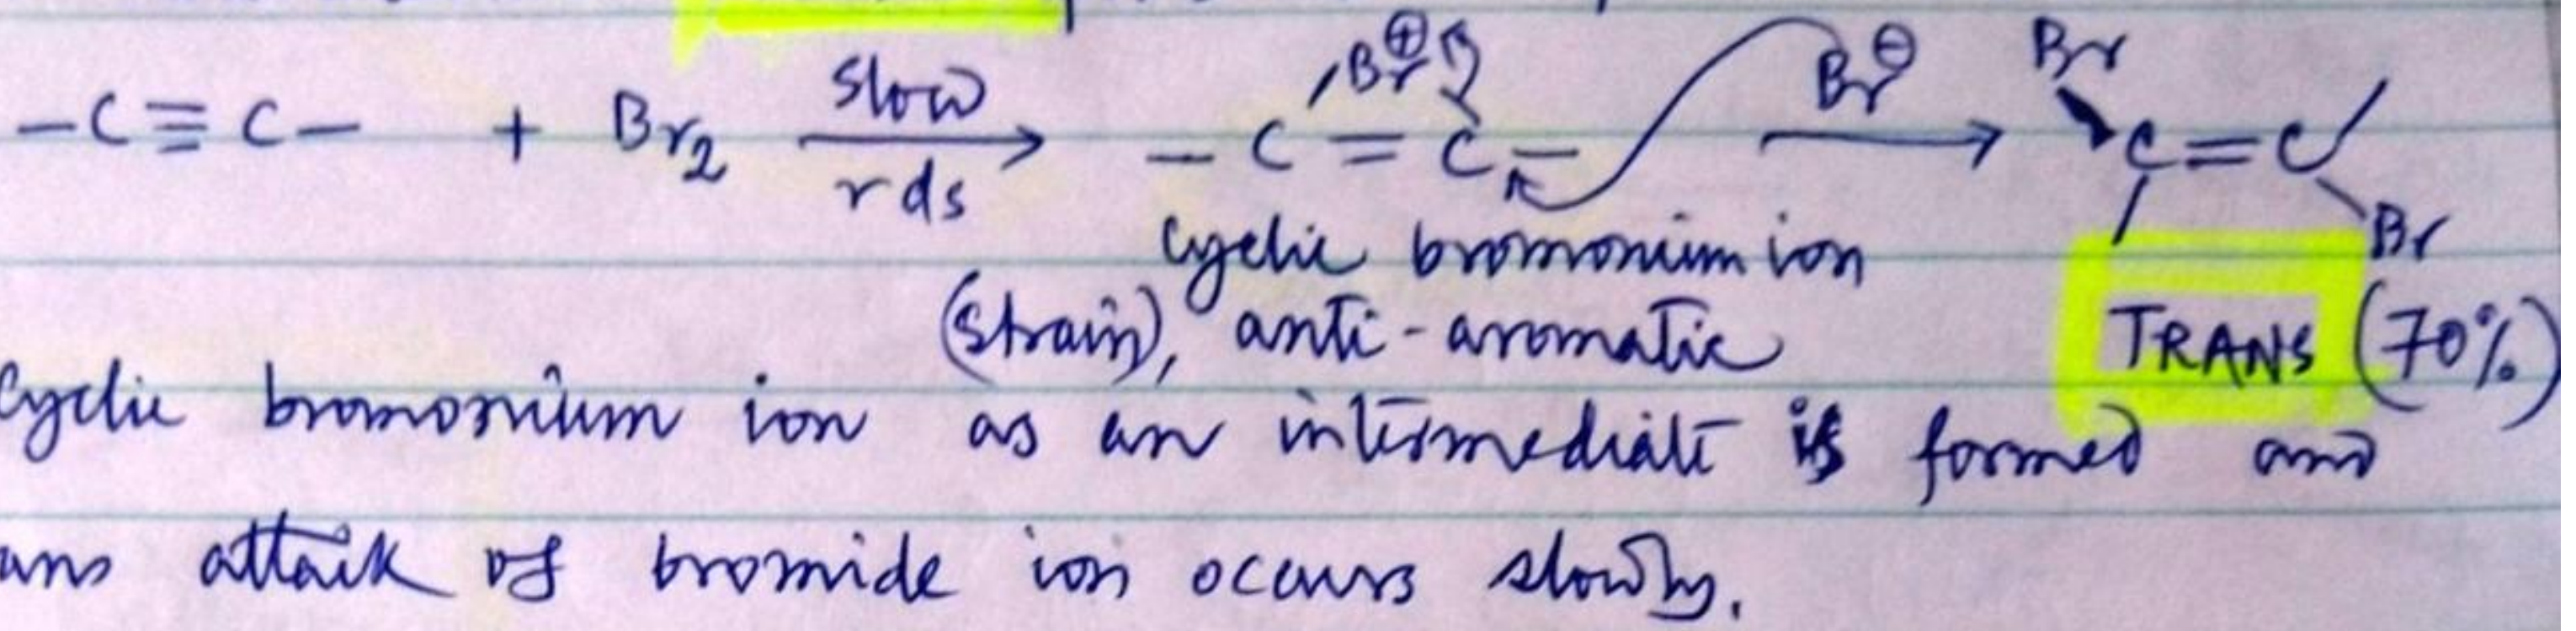 -C≡C- + Br₂ slow rds → -C=C- Br⊕ Br⊖ → Br C=C Br
cyclic bromonium ion
(strain), anti-aromatic TRANS (70%)
cyclic bromonium ion as an intermediate is formed and
ans attack of bromide ion occurs slowly.